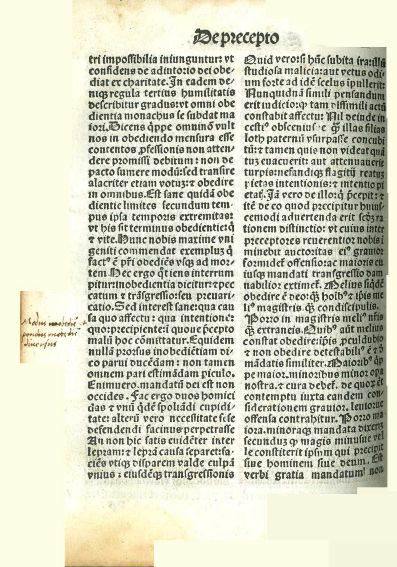 De precepto
tri impossibilia iniunguntur: vt
confidens de adiutorio dei obe-
diat ex charitate. In eadem de-
niqȝ regula tertius humilitatis
describitur gradus: vt omni obe
dientia monachus se subdat ma
iori. Dicens q̃ppe omnino vult
nos in obediendo mensura esse
contentos ꝓfessionis non atten
dere promissi debitum: non de
pacto sumere modũ: sed transire
alacriter etiam votuȝ: ⁊ obedire
in omnibus. Est sane quidã obe
dientie limites secundum tem-
pus ipsa temporis extremitas:
vt his sit terminus obedientie: q̃
⁊ vite. Nunc nobis maxime vni
geniti commendat exemplũ: q̃
factꝰ ẽ pr̃i obediẽs vsqȝ ad mor
tem. Nec ergo q̃ tiens interrum
pitur inobedientia dicitur: ⁊ pec
catum ⁊ trãsgressio: seu preuari
catio. Sed interest sane: qua cau
sa quo affectu: qua intentione:
quo precipiente: quoue p̃cepto
malũ hoc cõmittatur. Equidem
nullã prorsus inobedientiam di
co parui ducẽdam: non tamen
omnem pari estimãdam piculo.
Enimuero. mandatũ dei est non
occides. Fac ergo duos homici
das: ⁊ vnũ q̃dẽ spoliãdi cupidi
tate: alterũ vero necessitate se
defendendi facinus perpetrasse
An non hic satis euidẽter inter
lepram: ⁊ leprã causa separet: fa-
ciẽs vtiqȝ disparem valde culpã
vnius: eiusdẽqȝ transgressionis
Quid vero: si hũc subita ira: illũ
studiosa malicia: aut vetus odi-
um forte ad idẽ scelus ipulerit:
Nunquidnã simili pensandum
erit iudicio: q̃ tam dissimili actũ
constabit affectu: Nil deinde in-
cestꝰ obscenius: ⁊ q̃ illas filias
loth paternũ vsurpasse concubi
tũ: ⁊ tamen quis non videat quã
tuȝ euacuerit: aut attenuauerit
turpis: nefandiqȝ flagitij reatũ
pietas intentionis: ⁊ intentio pi
etatȝ. Iã vero de illo: q̃ p̃cepit: ⁊
itẽ de eo quod precipitur huius-
cemodi aduertenda erit scdȝ ra
tionem distinctio: vt cuius inter
preceptores reuerentior nobis ĩ
minebit auctoritas: eiꝰ grauior
formidet offensio: ac maioris cu
iusqȝ mandati transgressio dam
nabilior extimet. Melius siq̃dẽ
obedire ẽ deo: q̃ȝ hoĩbꝰ: ⁊ ipis me
liꝰ magistris: q̃ȝ condiscipulis.
Porro magistris meliꝰ nr̃is
q̃ȝ extraneis. Quibꝰ aũt melius
constat obedire: ipis ꝓculdubio
⁊ non obedire detestabilꝰ: ⁊ dã
matius similiter.
pe maior. minoribus minor opa
nostra: ⁊ cura debet: de quoȝ et
contemptu iuxta eandem con-
siderationem grauior. leniorue
offensa contrahitur. Porro ma
iora. minoraqȝ mandata dixerĩ
secundũ q̃ magis minusue vel
le constiterit ipsum qui precipit
siue hominem siue deum. Est
verbi gratia mandatum non